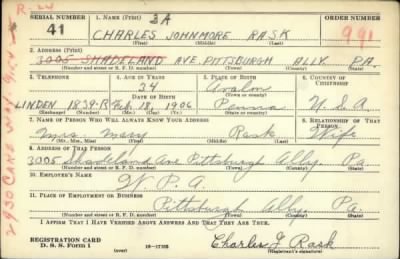 R-24
SERIAL NUMBER 1. NAME (Print) 3A ORDER NUMBER
41 CHARLES JOHNMORE RASK 991
(First) (Middle) (Last)
2. ADDRESS (Print)
3005 SHADELAND AVE. PITTSBURGH ALLY. PA.
(Number and street or R. F. D. number) (Town) (County) (State)
3. TELEPHONE 4. AGE IN YEARS 5. PLACE OF BIRTH 6. COUNTRY OF CITIZENSHIP
34 Avalon
DATE OF BIRTH (Town or county)
LINDEN 1839-R Feb. 18, 1906 Penna U.S.A.
(Exchange) (Number) (Mo.) (Day) (Yr.) (State or country)
7. NAME OF PERSON WHO WILL ALWAYS KNOW YOUR ADDRESS 8. RELATIONSHIP OF THAT PERSON
Mrs. Mary Rask Wife
(Mr., Mrs., Miss) (First) (Middle) (Last)
9. ADDRESS OF THAT PERSON
3005 Shadeland Ave Pittsburgh Ally. Pa.
(Number and street or R. F. D. number) (Town) (County) (State)
10. EMPLOYER'S NAME
W.P.A.
11. PLACE OF EMPLOYMENT OR BUSINESS
Pittsburgh Ally. Pa.
(Number and street or R. F. D. number) (Town) (County) (State)
I AFFIRM THAT I HAVE VERIFIED ABOVE ANSWERS AND THAT THEY ARE TRUE.
REGISTRATION CARD
D. S. S. Form 1 (over) 16-17105 Charles J Rask
(Registrant's signature)